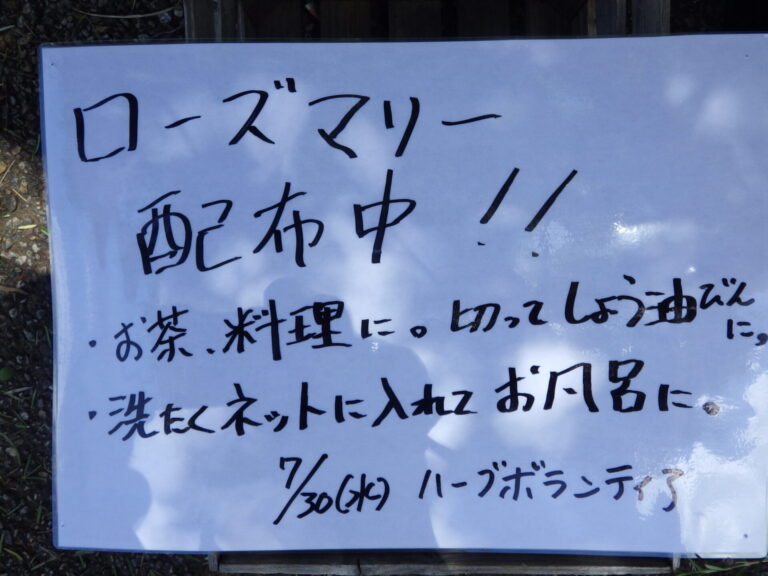 ローズマリー
配布中!!
・お茶、料理に。切ってしょう油びんに。
・洗たくネットに入れてお風呂に。
7/30(水) ハーブボランティア